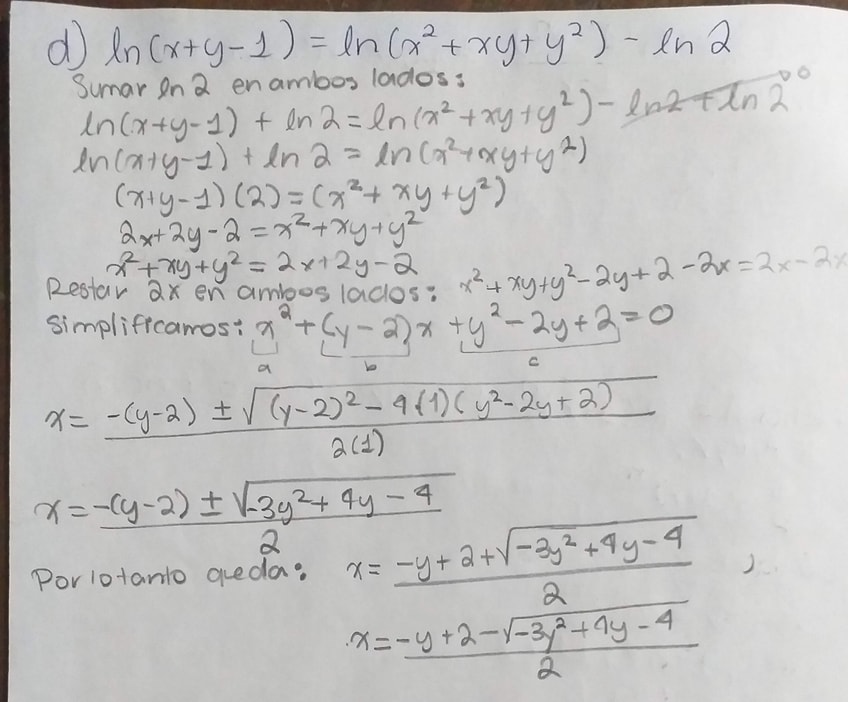 d) ln(x+y-1) = ln(x²+xy+y²) - ln 2
Sumar ln 2 en ambos lados:
ln(x+y-1) + ln 2 = ln(x²+xy+y²) - ln2 + ln 2 0
ln(x+y-1) + ln 2 = ln(x²+xy+y²)
(x+y-1)(2) = (x²+xy+y²)
2x+2y-2 = x²+xy+y²
x²+xy+y² = 2x+2y-2
Restar 2x en ambos lados: x²+xy+y²-2y+2-2x = 2x-2x
Simplificamos: x²+(y-2)x+y²-2y+2=0
a b c
x= -(y-2) ± √(y-2)²-4(1)(y²-2y+2)
2(1)
x=-(y-2) ± √-3y²+4y-4
2
Por lo tanto queda: x= -y+2+√-3y²+4y-4 ,
2
x=-y+2-√-3y²+4y-4
2